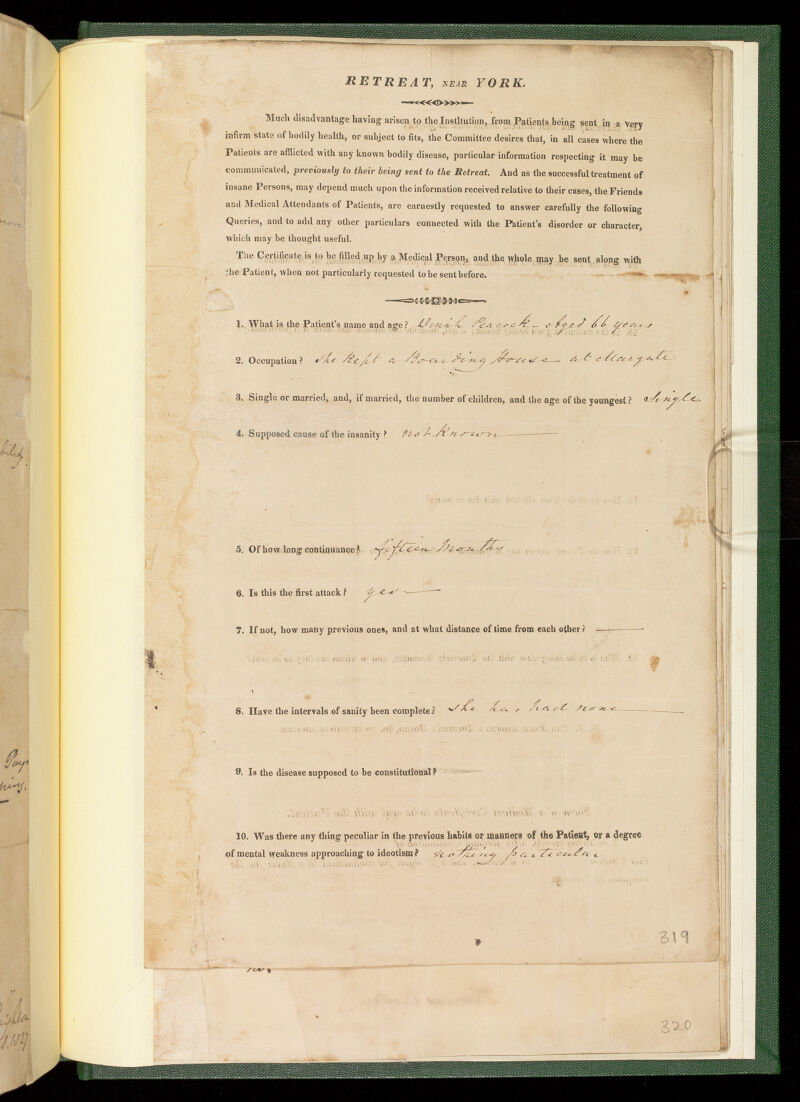 RETREAT, NEAR YORK.
Much disadvantage having arisen to the Institution, from Patients being sent in a very
infirm state of bodily health, or subject to fits, the Committee desires that, in all cases where the
Patients are afflicted with any known bodily disease, particular information respecting it may be
communicated, previously to their being sent to the Retreat. And as the successful treatment of
insane Persons, may depend much upon the information received relative to their cases, the Friends
and Medical Attendants of Patients, are earnestly requested to answer carefully the following
Queries, and to add any other particulars connected with the Patient's disorder or character,
which may be thought useful.
The Certificate is to be filled up by a Medical Person, and the whole may be sent along with
the Patient, when not particularly requested to be sent before.
1. What is the Patient's name and age? Dinah Peacock - Aged 66 years
2. Occupation? She Kept a Boarding House at Margate
3. Single or married, and, if married, the number of children, and the age of the youngest? Single
4. Supposed cause of the insanity? not Known
5. Of how long continuance? fifteen Months
6. Is this the first attack? yes
7. If not, how many previous ones, and at what distance of time from each other?
8. Have the intervals of sanity been complete? She has had none
9. Is the disease supposed to be constitutional?
10. Was there any thing peculiar in the previous habits or manners of the Patient, or a degree
of mental weakness approaching to ideotism? nothing particular
319
320